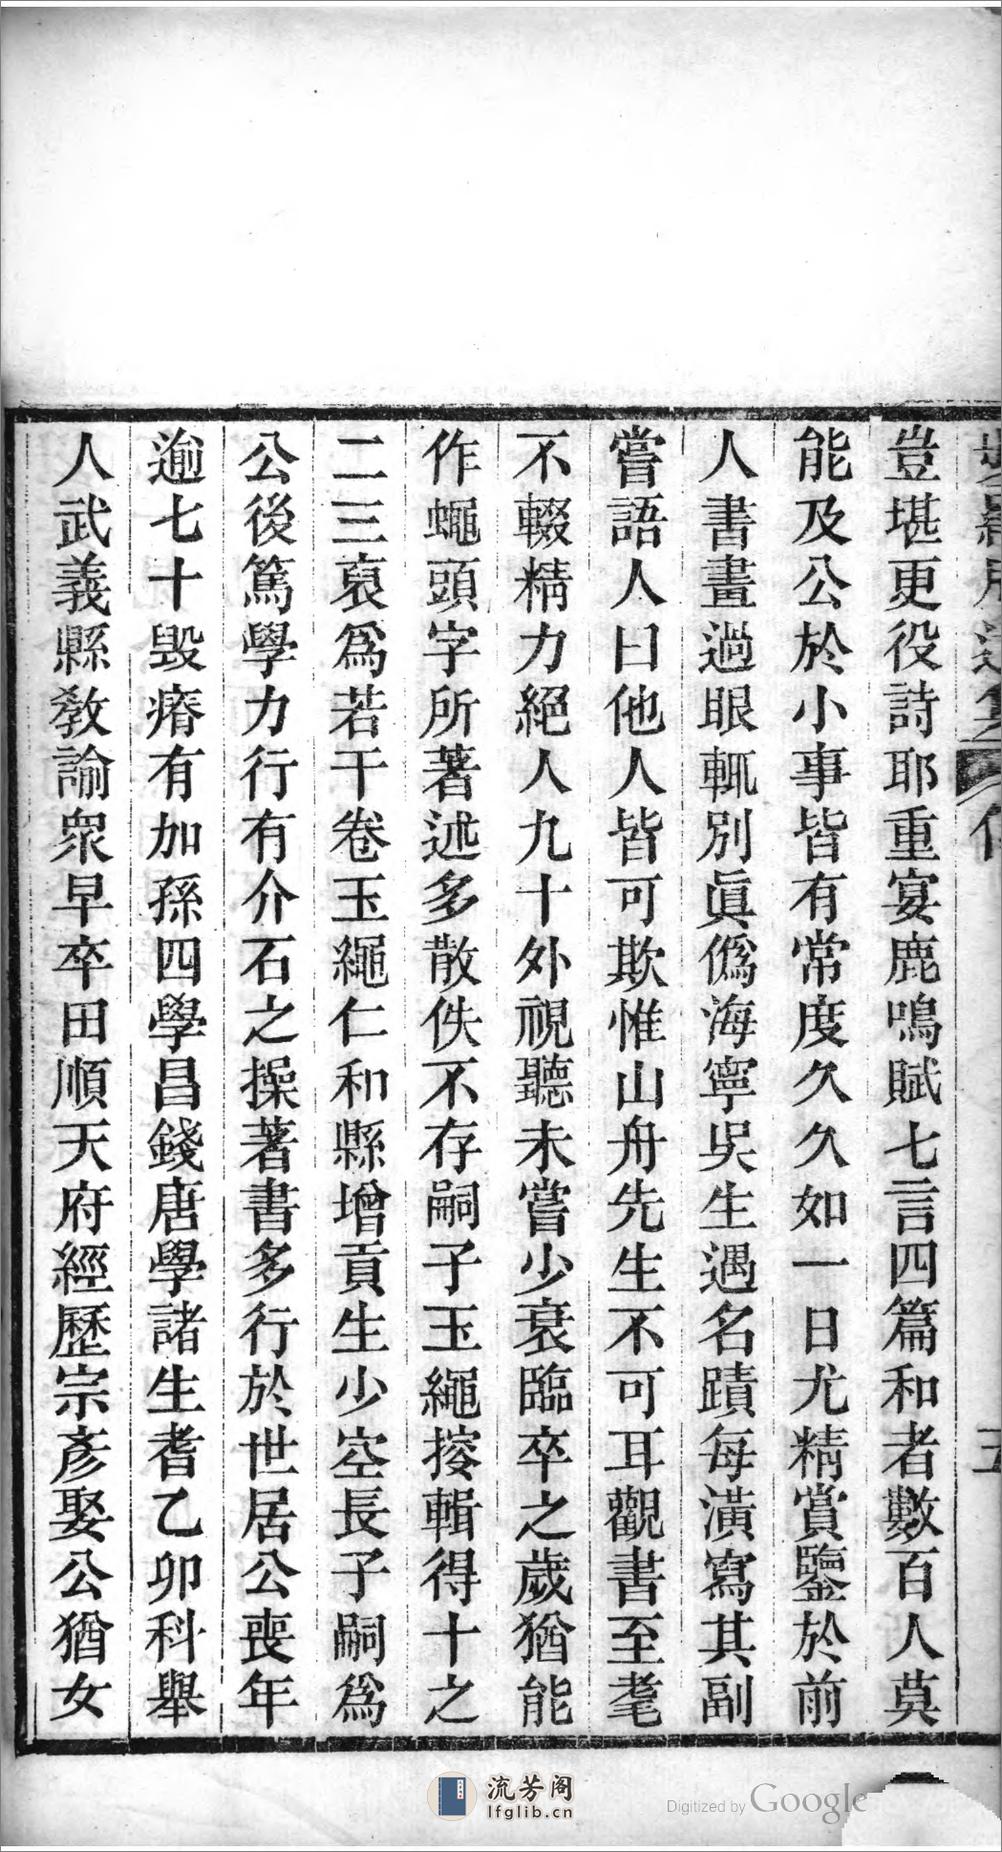 豈堪更役詩耶重宴鹿鳴賦七言四篇和者數百人莫
能及公於小事皆有常度久久如一日尤精賞鑒於前
人書畫過眼輒別眞僞海寧吳生遇名蹟每潢寫其副
嘗語人曰他人皆可欺惟山舟先生不可耳觀書至耄
不輟精力絕人九十外視聽未嘗少衰臨卒之歲猶能
作蠅頭字所著述多散佚不存嗣子玉繩挍輯得十之
二三裒爲若干卷玉繩仁和縣增貢生少空長子嗣爲
公後篤學力行有介石之操著書多行於世居公喪年
逾七十毀瘠有加孫四學昌錢唐學諸生耆乙卯科舉
人武義縣敎諭衆早卒田順天府經歷宗彥娶公猶女
流芳阁
lfglib.cn
Digitized by Google